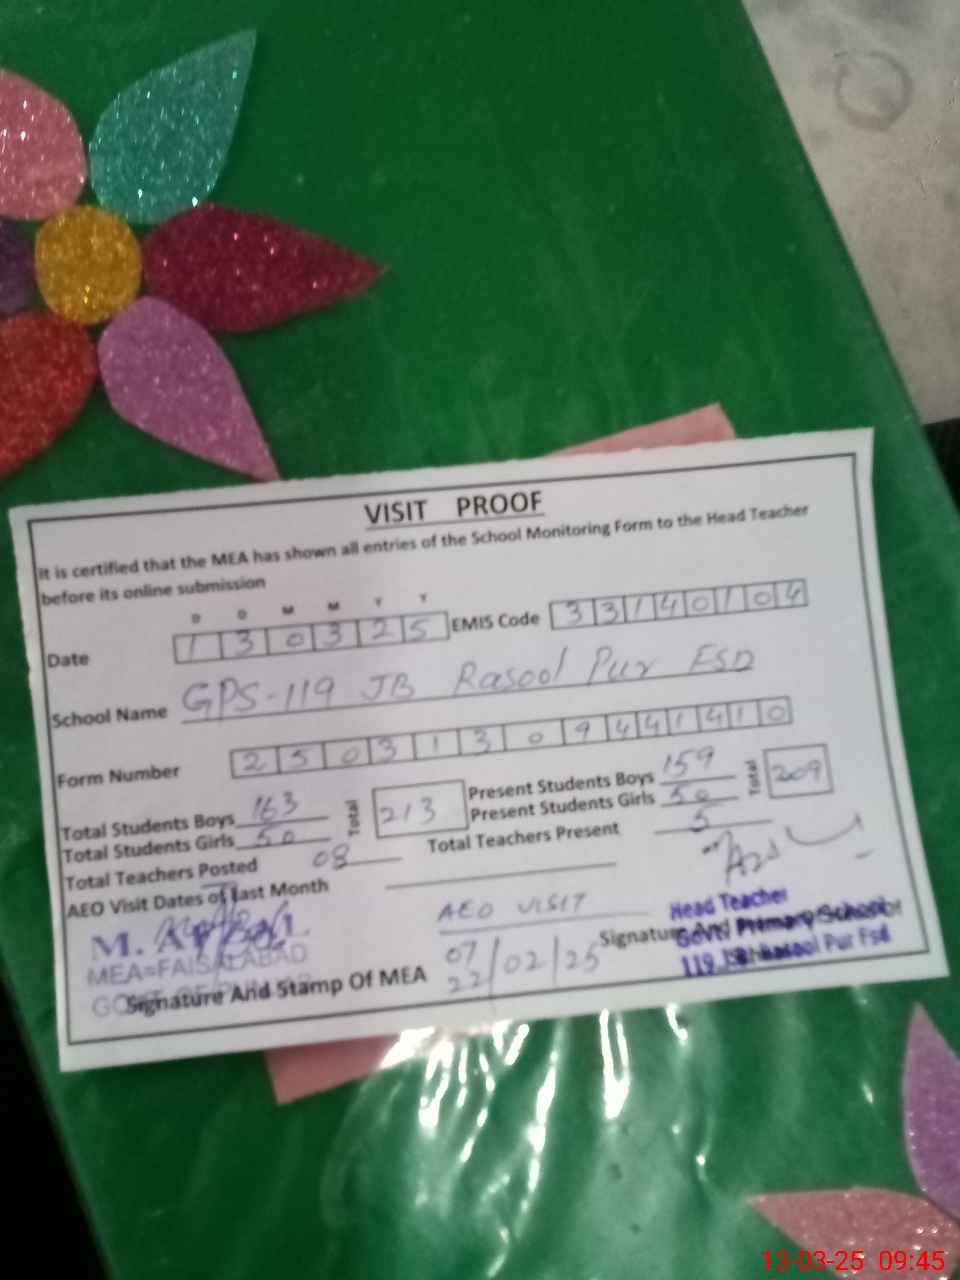 VISIT PROOF
It is certified that the MEA has shown all entries of the School Monitoring Form to the Head Teacher
before its online submission
D D M M Y Y
Date 130325 EMIS Code 33140104
School Name GPS-119 JB Rasool Pur FSD
Form Number 25031309441410
Total Students Boys 163 Total 213 Present Students Boys 159 Total 209
Total Students Girls 50 Present Students Girls 50
Total Teachers Posted 08 Total Teachers Present 5
AEO Visit Dates of last Month
AEO VISIT
07
22/02/25
M.
MEA=FAISALABAD
GOVT OF
Signature And Stamp Of MEA
Signature And
Head Teacher
Govt Primary School
119 JB Rasool Pur Fsd
13-03-25 09:45